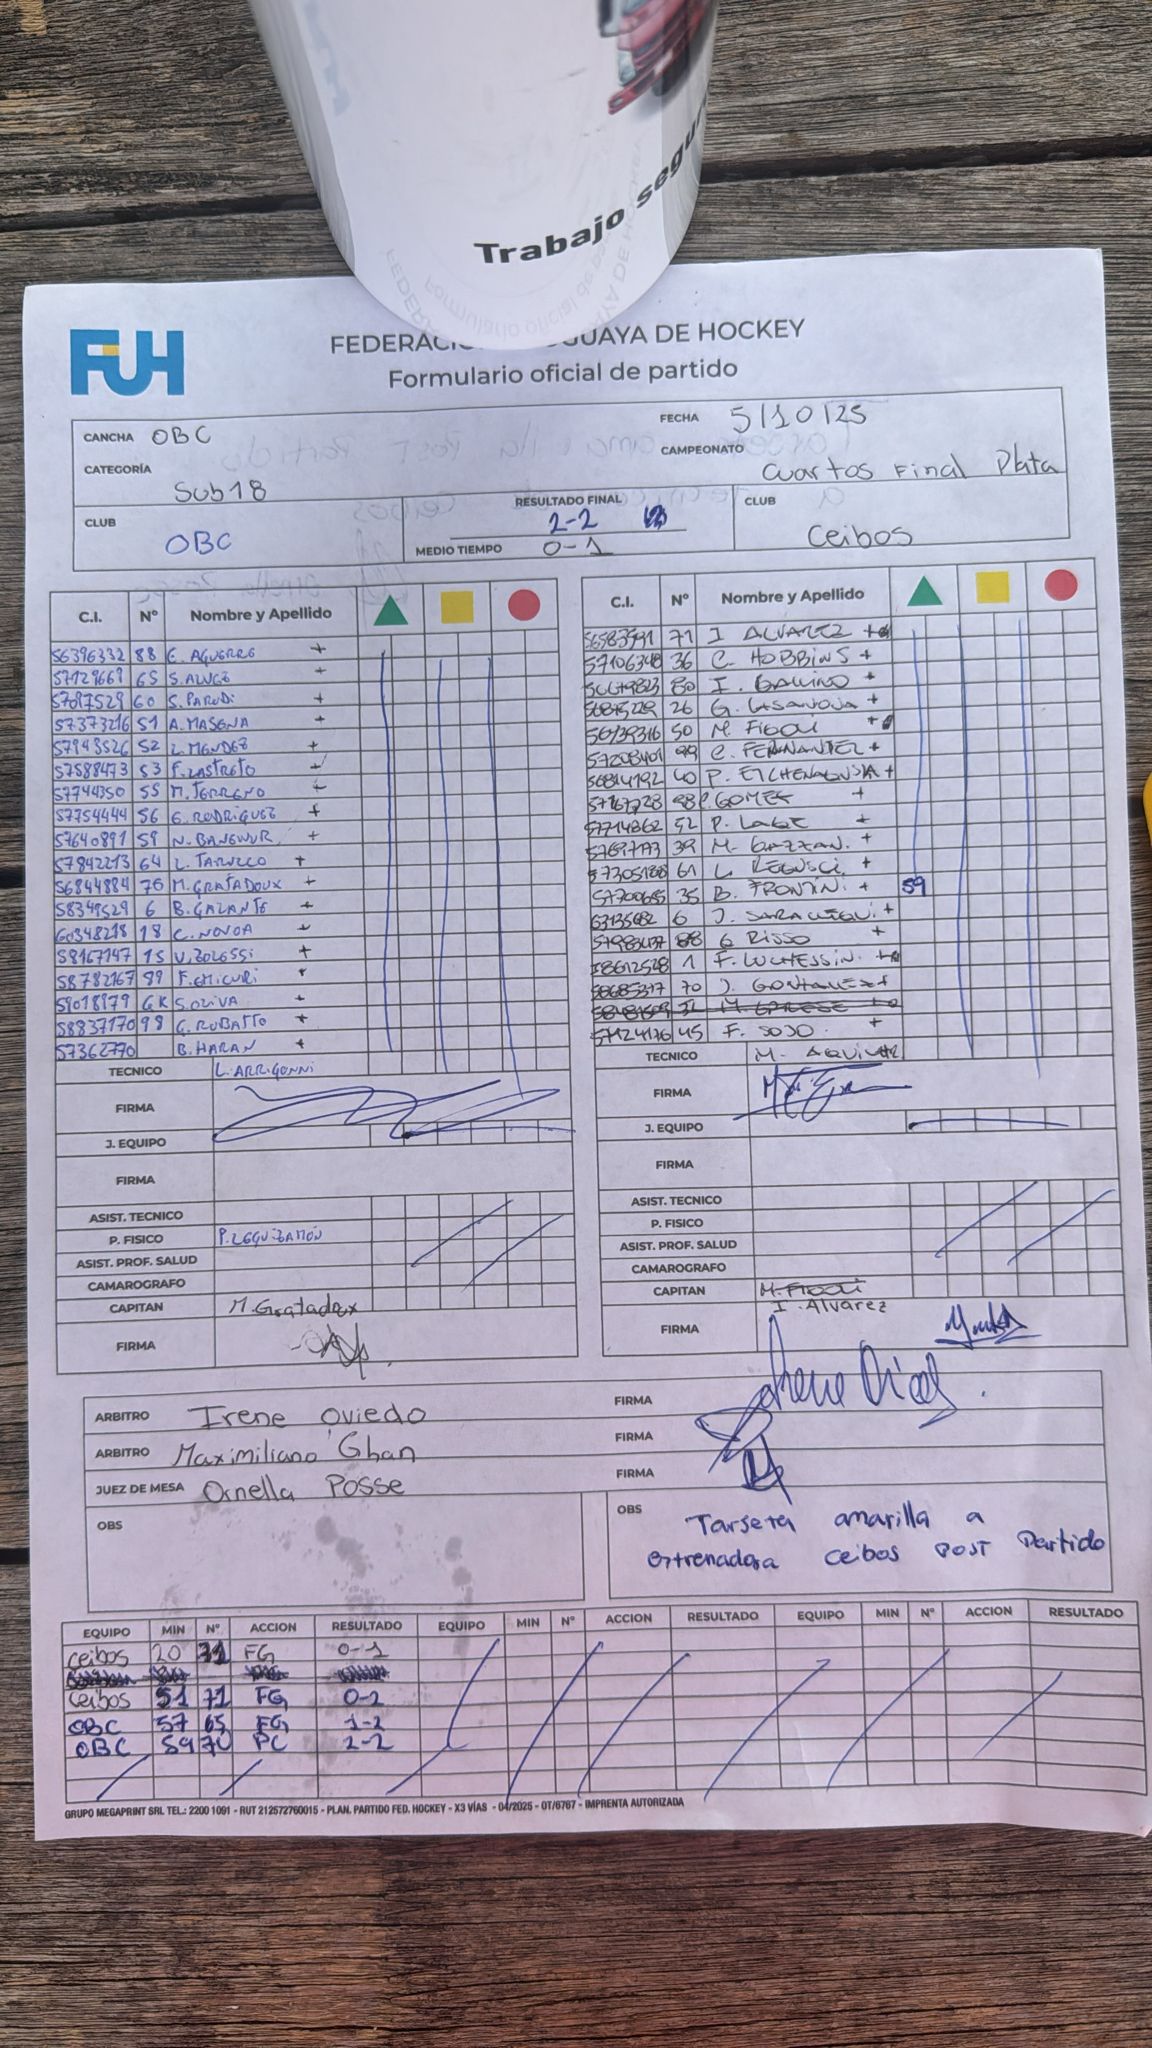 Trabajo segur
FUH
FEDERACI UGUAYA DE HOCKEY
Formulario oficial de partido
CANCHA OBC
FECHA 5/10/25
CATEGORÍA Sub18
CAMPEONATO Cuartos Final Plata
CLUB OBC
RESULTADO FINAL 2-2
MEDIO TIEMPO 0-1
CLUB Ceibos
C.I. Nº Nombre y Apellido
56396332 88 C. AGUERRE +
57129669 65 S. +
57097529 60 S. PARODI +
57373216 51 A. MASGNA +
57943526 52 L. MENDEZ +
57588473 53 F. LASTRETO +
57744350 55 M. TERRENO +
57754444 56 G. RODRIGUEZ +
57640891 59 N. +
57842213 64 L. TARULLO +
56844884 76 M. GRATADOUX +
58349529 6 B. GALANTE +
60348218 18 C. NOVOA +
58167147 15 V. +
58782167 89 F. +
59018979 GK S. OLIVA +
58837170 98 C. ROBATTO +
57362770 B. HARAN +
TECNICO L. ARRIGONNI
FIRMA
J. EQUIPO
FIRMA
ASIST. TECNICO
P. FISICO P. LEGUIZAMÓN
ASIST. PROF. SALUD
CAMAROGRAFO
CAPITAN M. Gratadoux
FIRMA
C.I. Nº Nombre y Apellido
56583991 71 I. ALVAREZ +
57106348 36 C. HOBBINS +
80 I. GALLINO +
26 G. CASANOVA +
56739316 50 M. FIGOLI +
57208401 99 C. FERNANDEZ +
56814192 40 P. ETCHENAUSIA +
P. GOMEZ +
57714862 52 P. LAGE +
57697173 39 M. GAZZAN. +
61 L. REGUSCI. +
57700655 35 B. FRONTINI. + 59
63135682 6 J. +
57983437 88 G. RISSO +
58612528 1 F. LUCHESSIN. +
58685317 70 J. +
57124176 45 F. SOJO. +
TECNICO M. AGUILAR
FIRMA
J. EQUIPO
FIRMA
ASIST. TECNICO
P. FISICO
ASIST. PROF. SALUD
CAMAROGRAFO
CAPITAN M. FIGOLI
I. Alvarez
FIRMA
ARBITRO Irene Oviedo FIRMA
ARBITRO Maximiliano Ghan FIRMA
JUEZ DE MESA Ornella Posse FIRMA
OBS
OBS Tarjeta amarilla a
entrenadora ceibos post Partido
EQUIPO MIN Nº ACCION RESULTADO EQUIPO MIN Nº ACCION RESULTADO EQUIPO MIN Nº ACCION RESULTADO
Ceibos 20 71 FG 0-1
Ceibos 51 71 FG 0-2
OBC 57 65 FG 1-2
OBC 59 76 PC 2-2
GRUPO MEGAPRINT SRL TEL.: 2200 1091 - RUT 212572760015 - PLAN. PARTIDO FED. HOCKEY - X3 VÍAS - 04/2025 - OT/6767 - IMPRENTA AUTORIZADA